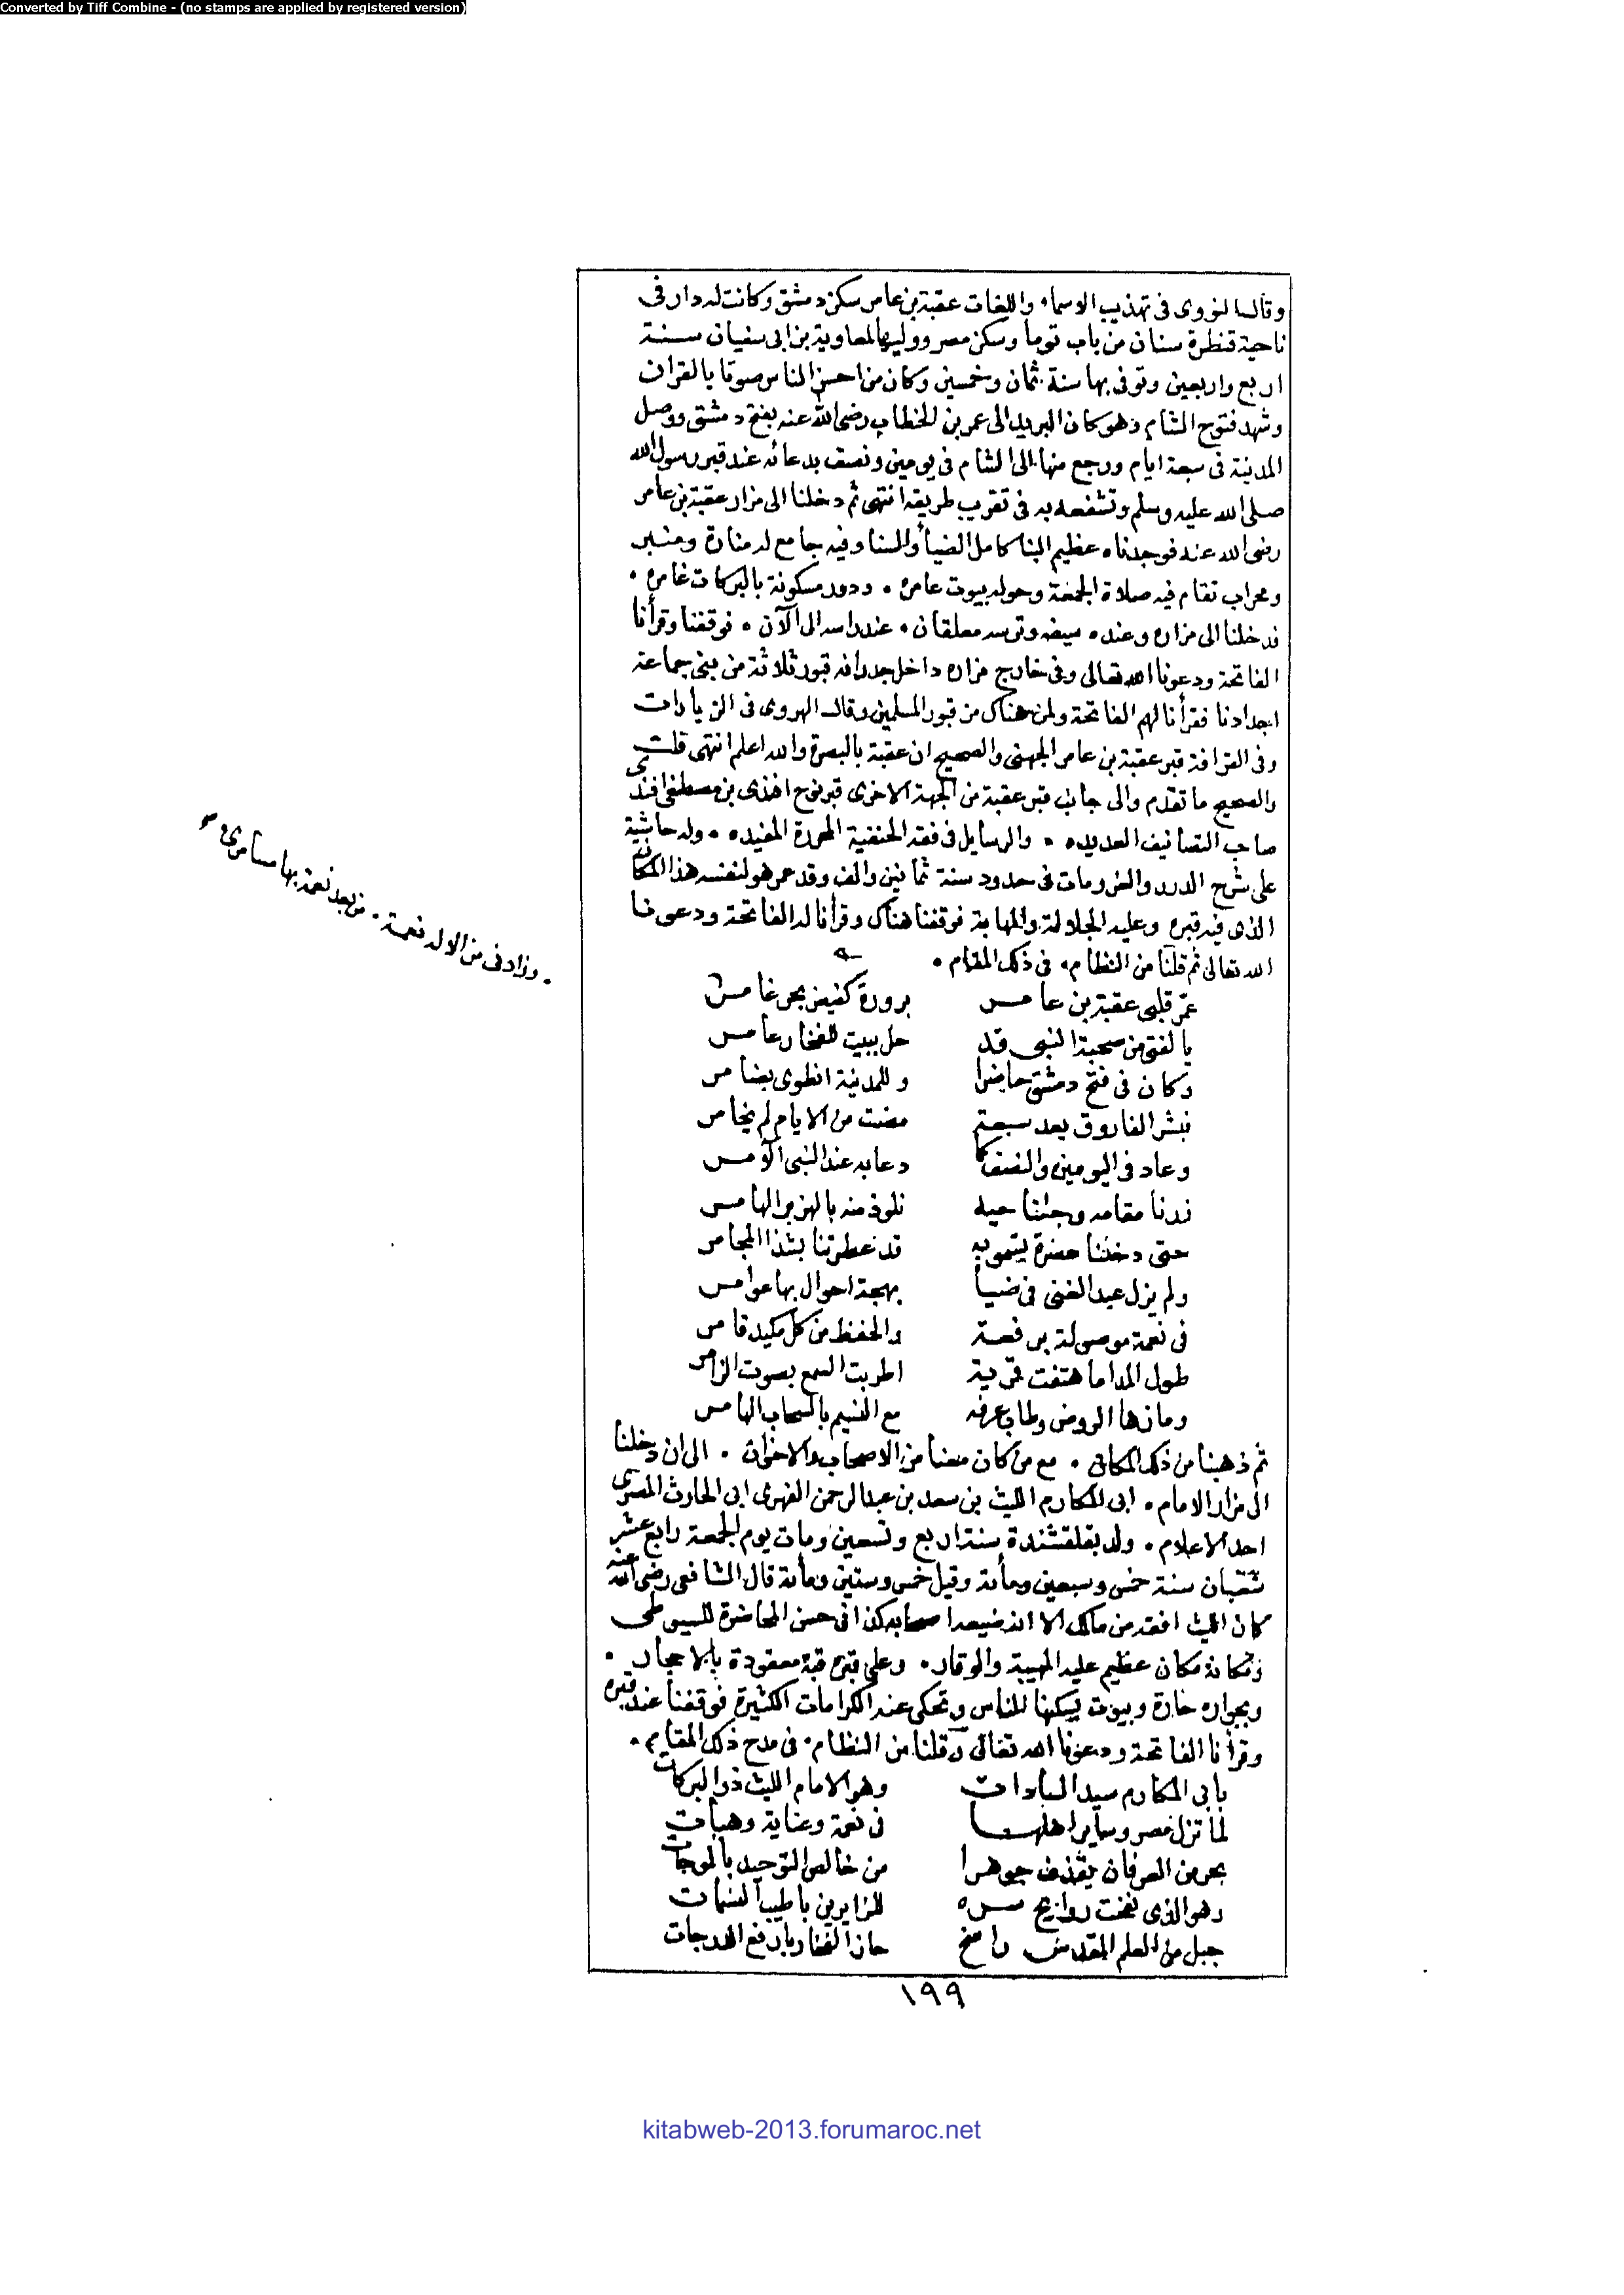 Converted by Tiff Combine - (no stamps are applied by registered version)
وقال النووى فى تهذيب الاسماء واللغات عقبة بن عامر سكن دمشق وكانت له دار فى
ناحية قنطرة سنان من باب توما وسكن مصر ووليها لمعاوية بن ابى سفيان سنة
اربع واربعين وتوفى بها سنة ثمان وخمسين وكان من احسن الناس صوتا بالقران
وشهد فتوح الشام وهو كان البريد الى عمر بن الخطاب رضى الله عنه بفتح دمشق ووصل
المدينة فى سبعة ايام ورجع منها الى الشام فى يومين ونصف بدعائه عند قبر رسول الله
صلى الله عليه وسلم وتشفعه به فى تقريب طريقه انتهى ثم دخلنا الى مزار عقبة بن عامر
رضى الله عنه فوجدناه عظيم البنا كامل الضيا والسنا وفيه جامع له منارة ومنبر
ومحراب تقام فيه صلاة الجمعة وحوله بيوت عامره . ودور مسكونة بالبركات غامره .
فدخلنا الى مزاره وعنده سيفه وترسه معلقان . عند راسه الى الآن . فوقفنا وقرأنا
الفاتحة ودعونا الله تعالى وفى خارج مزاره داخل جدرانه قبور ثلاثة من بنى جماعة
اجدادنا فقرأنا لهم الفاتحة ولمن هناك من قبور المسلمين وقال الهروى فى الزيارات
وفى القرافة قبر عقبة بن عامر الجهنى والصحيح ان عقبة بالبصرة والله اعلم انتهى قلت
والصحيح ما تقدم والى جانب قبر عقبة من الجهة الاخرى قبر نوح افندى بن مصطفى افندى
صاحب التصانيف العديده . والرسايل فى فقه الحنفية المحررة المفيده . وله حاشية
على شرح الدرر والغرر ومات فى حدود سنة ثمانين والف وقد عمر هو لنفسه هذا المكان
الذى فيه قبره وعليه الجلالة والمهابة فوقفنا هناك وقرأنا له الفاتحة ودعونا
الله تعالى ثم قلنا من النظام . فى ذلك المقام .
عمّر قلبى عقبة بن عامر بزورة كفيض بحر غامر
يا لفتى من صحبة النبى قد حل ببيت للفخار عامر
وكان فى فتح دمشق حاضرا وللمدينة انطوى بضامر
فبشر الفاروق بعد سبعة مضت من الايام لم يخامر
وعاد فى اليومين والنصف دعا به عند النبى الآمر
زرنا مقامه وجئنا حيه نلوذ منه بالهزبر الهامر
حتى دخلنا حضرة يسمو به قد عطرتنا بشذا المجامر
ولم يزل عبد الغنى فى ضيا بهجة احوال بها عوامر
فى نعمة موصولة برفعة والحفظ من كل مكيد قامر
طول المدا ما هتفت قمرية اطربت السمع بصوت الزامر
وما زها الروض وطاب عرفه مع النسيم بالسحاب الهامر
ثم ذهبنا من ذلك المكان . مع من كان معنا من الاصحاب والاخوان . الى ان دخلنا
الى مزار الامام . ابى المكارم الليث بن سعد بن عبد الرحمن الفهمى ابى الحارث المصرى
احد الاعلام . ولد بقلقشندة سنة اربع وتسعين ومات يوم الجمعة رابع عشر
شعبان سنة خمس وسبعين ومأة وقيل خمس وستين ومأة قال الشافعى رضى الله عنه
كان الليث افقه من مالك الا انه ضيعه اصحابه كذا فى حسن المحاضرة للسيوطى
ومكانه مكان عظيم عليه الهيبة والوقار . وعلى قبره قبة معقودة بالاحجار .
وبجواره حارة وبيوت يسكنها الناس وتحكى عنه الكرامات الكثيرة فوقفنا عند قبره
وقرأنا الفاتحة ودعونا الله تعالى وقلنا من النظام . فى مدح ذلك المقام .
بابى المكارم سيد السادات وهو الامام الليث ذو البركات
لما تزل مصر وساير اهلها فى نعمة وعناية وهبات
بحر من العرفان يقذف جوهرا من خالص التوحيد بالموجات
وهو الذى نفحت روايح سره للزايرين باطيب النسمات
جبل من العلم المقدس راسخ حاز الفخار بارفع الدرجات
. وزاد فى من الاله نعمة . من بعد نعمة بها مسامرى .
١٩٩
kitabweb-2013.forumaroc.net